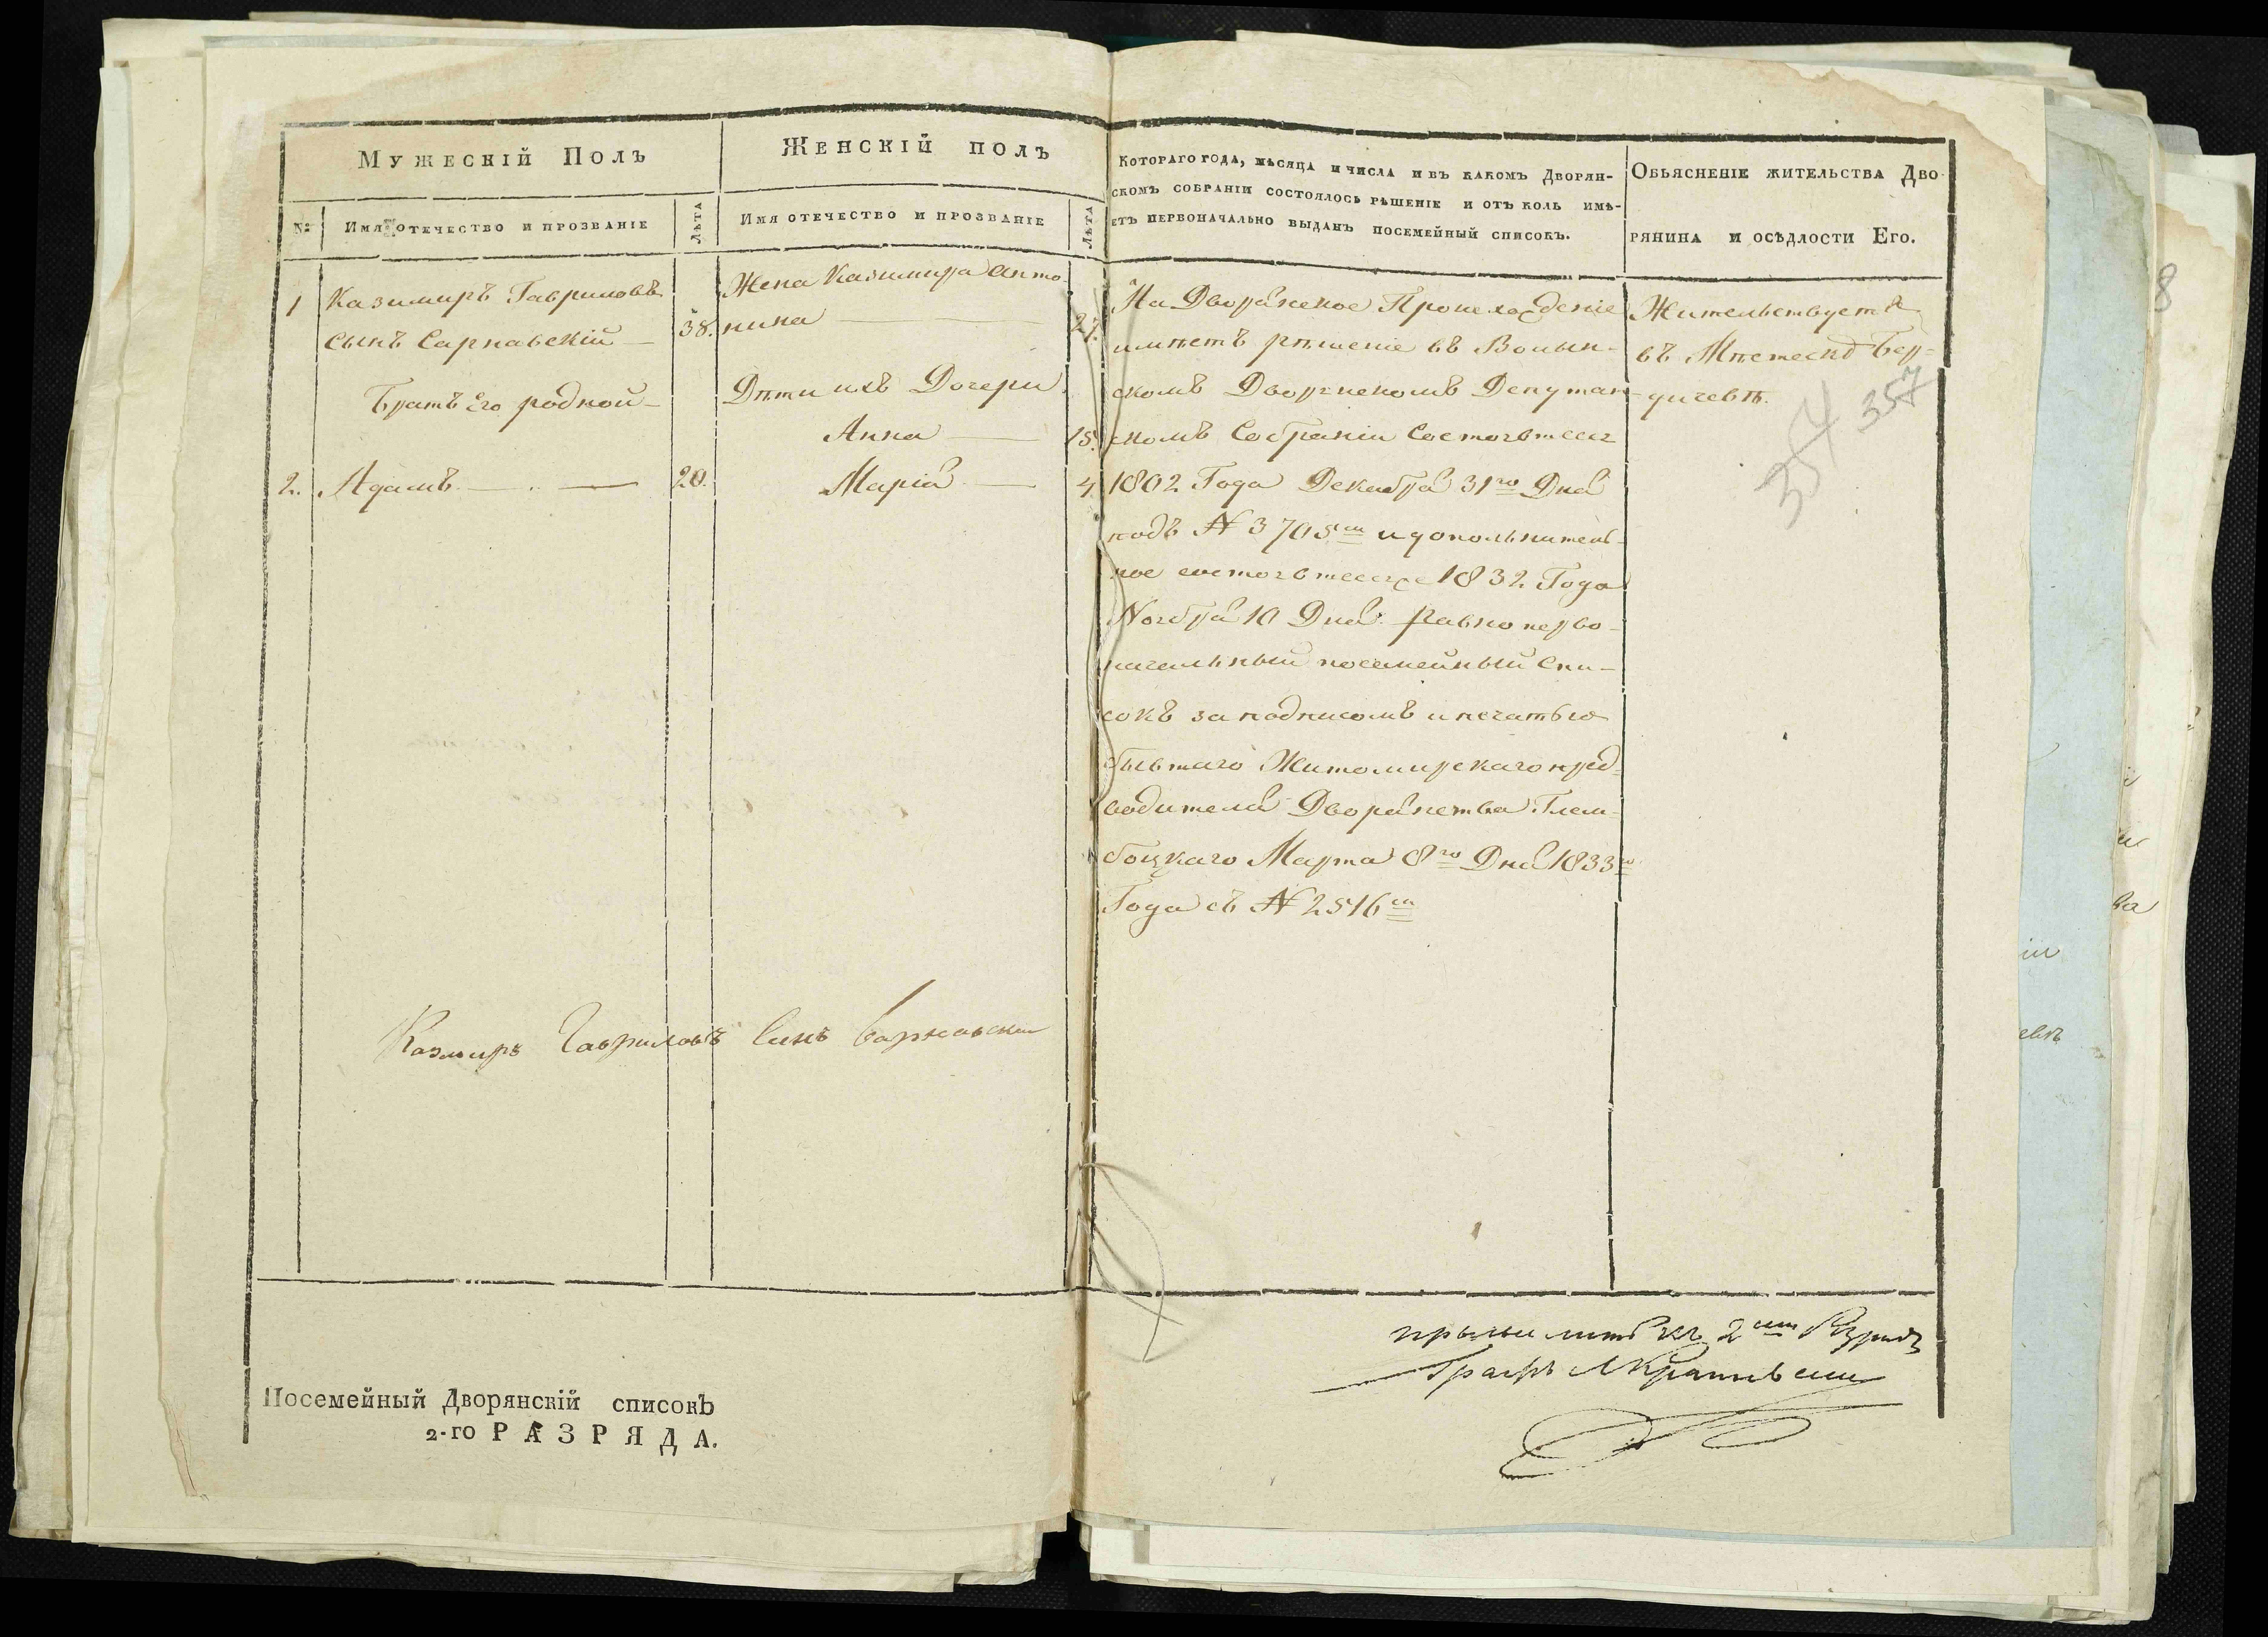 Мужескій Полъ
Женскій полъ
Котораго года, мѣсяца и числа и въ какомъ Дворян-
скомъ собраніи состоялось рѣшеніе и отъ коль имѣ-
етъ первоначально выданъ посемейный списокъ.
Объясненіе жительства Дво
рянина и осѣдлости Его.
№
Имя отечество и прозваніе
Лѣта
Имя отечество и прозваніе
Лѣта
1 Казимиръ Гавриловъ
сынъ Сарнавскій — 38.
Братъ Его родной —
2. Адамъ — 20.
Жена Казимира Анто
нина — 27.
Дѣти ихъ Дочери
Анна — 15.
Марія — 4.
На Дворянское Происхожденіе
имѣетъ рѣшеніе въ Волын-
скомъ Дворянскомъ Депутат-
скомъ Собраніи Состоявшееся
1802 Года Декабря 31го Дня
подъ № 3705м и дополнитель-
ное состоявшееся 1832 Года
Ноября 10 Дня. Равно перво-
начальный посемейный Спи-
сокъ за подписомъ и печатью
бывшаго Житомирскаго пред-
водителя Дворянства Глем-
боцкаго Марта 8го Дня 1833го
Года съ № 2516м
Жительствуетъ
въ Мѣстечкѣ Бер-
дичевѣ.
354 357
Казмиръ Гавриловъ Синъ Сарнавски
2 Розряд
Графъ
Посемейный Дворянскій списокъ
2-го РАЗРЯДА.
8